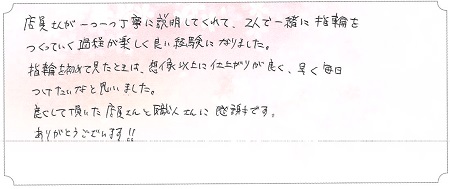 店員さんが一つ一つ丁寧に説明してくれて、2人で一緒に指輪を
つくっていく過程が楽しく良い経験になりました。
指輪を初めて見たときは、想像以上に仕上がりが良く、早く毎日
つけたいなと思いました。
良くして頂いた店員さんと職人さんに感謝です。
ありがとうございます!!